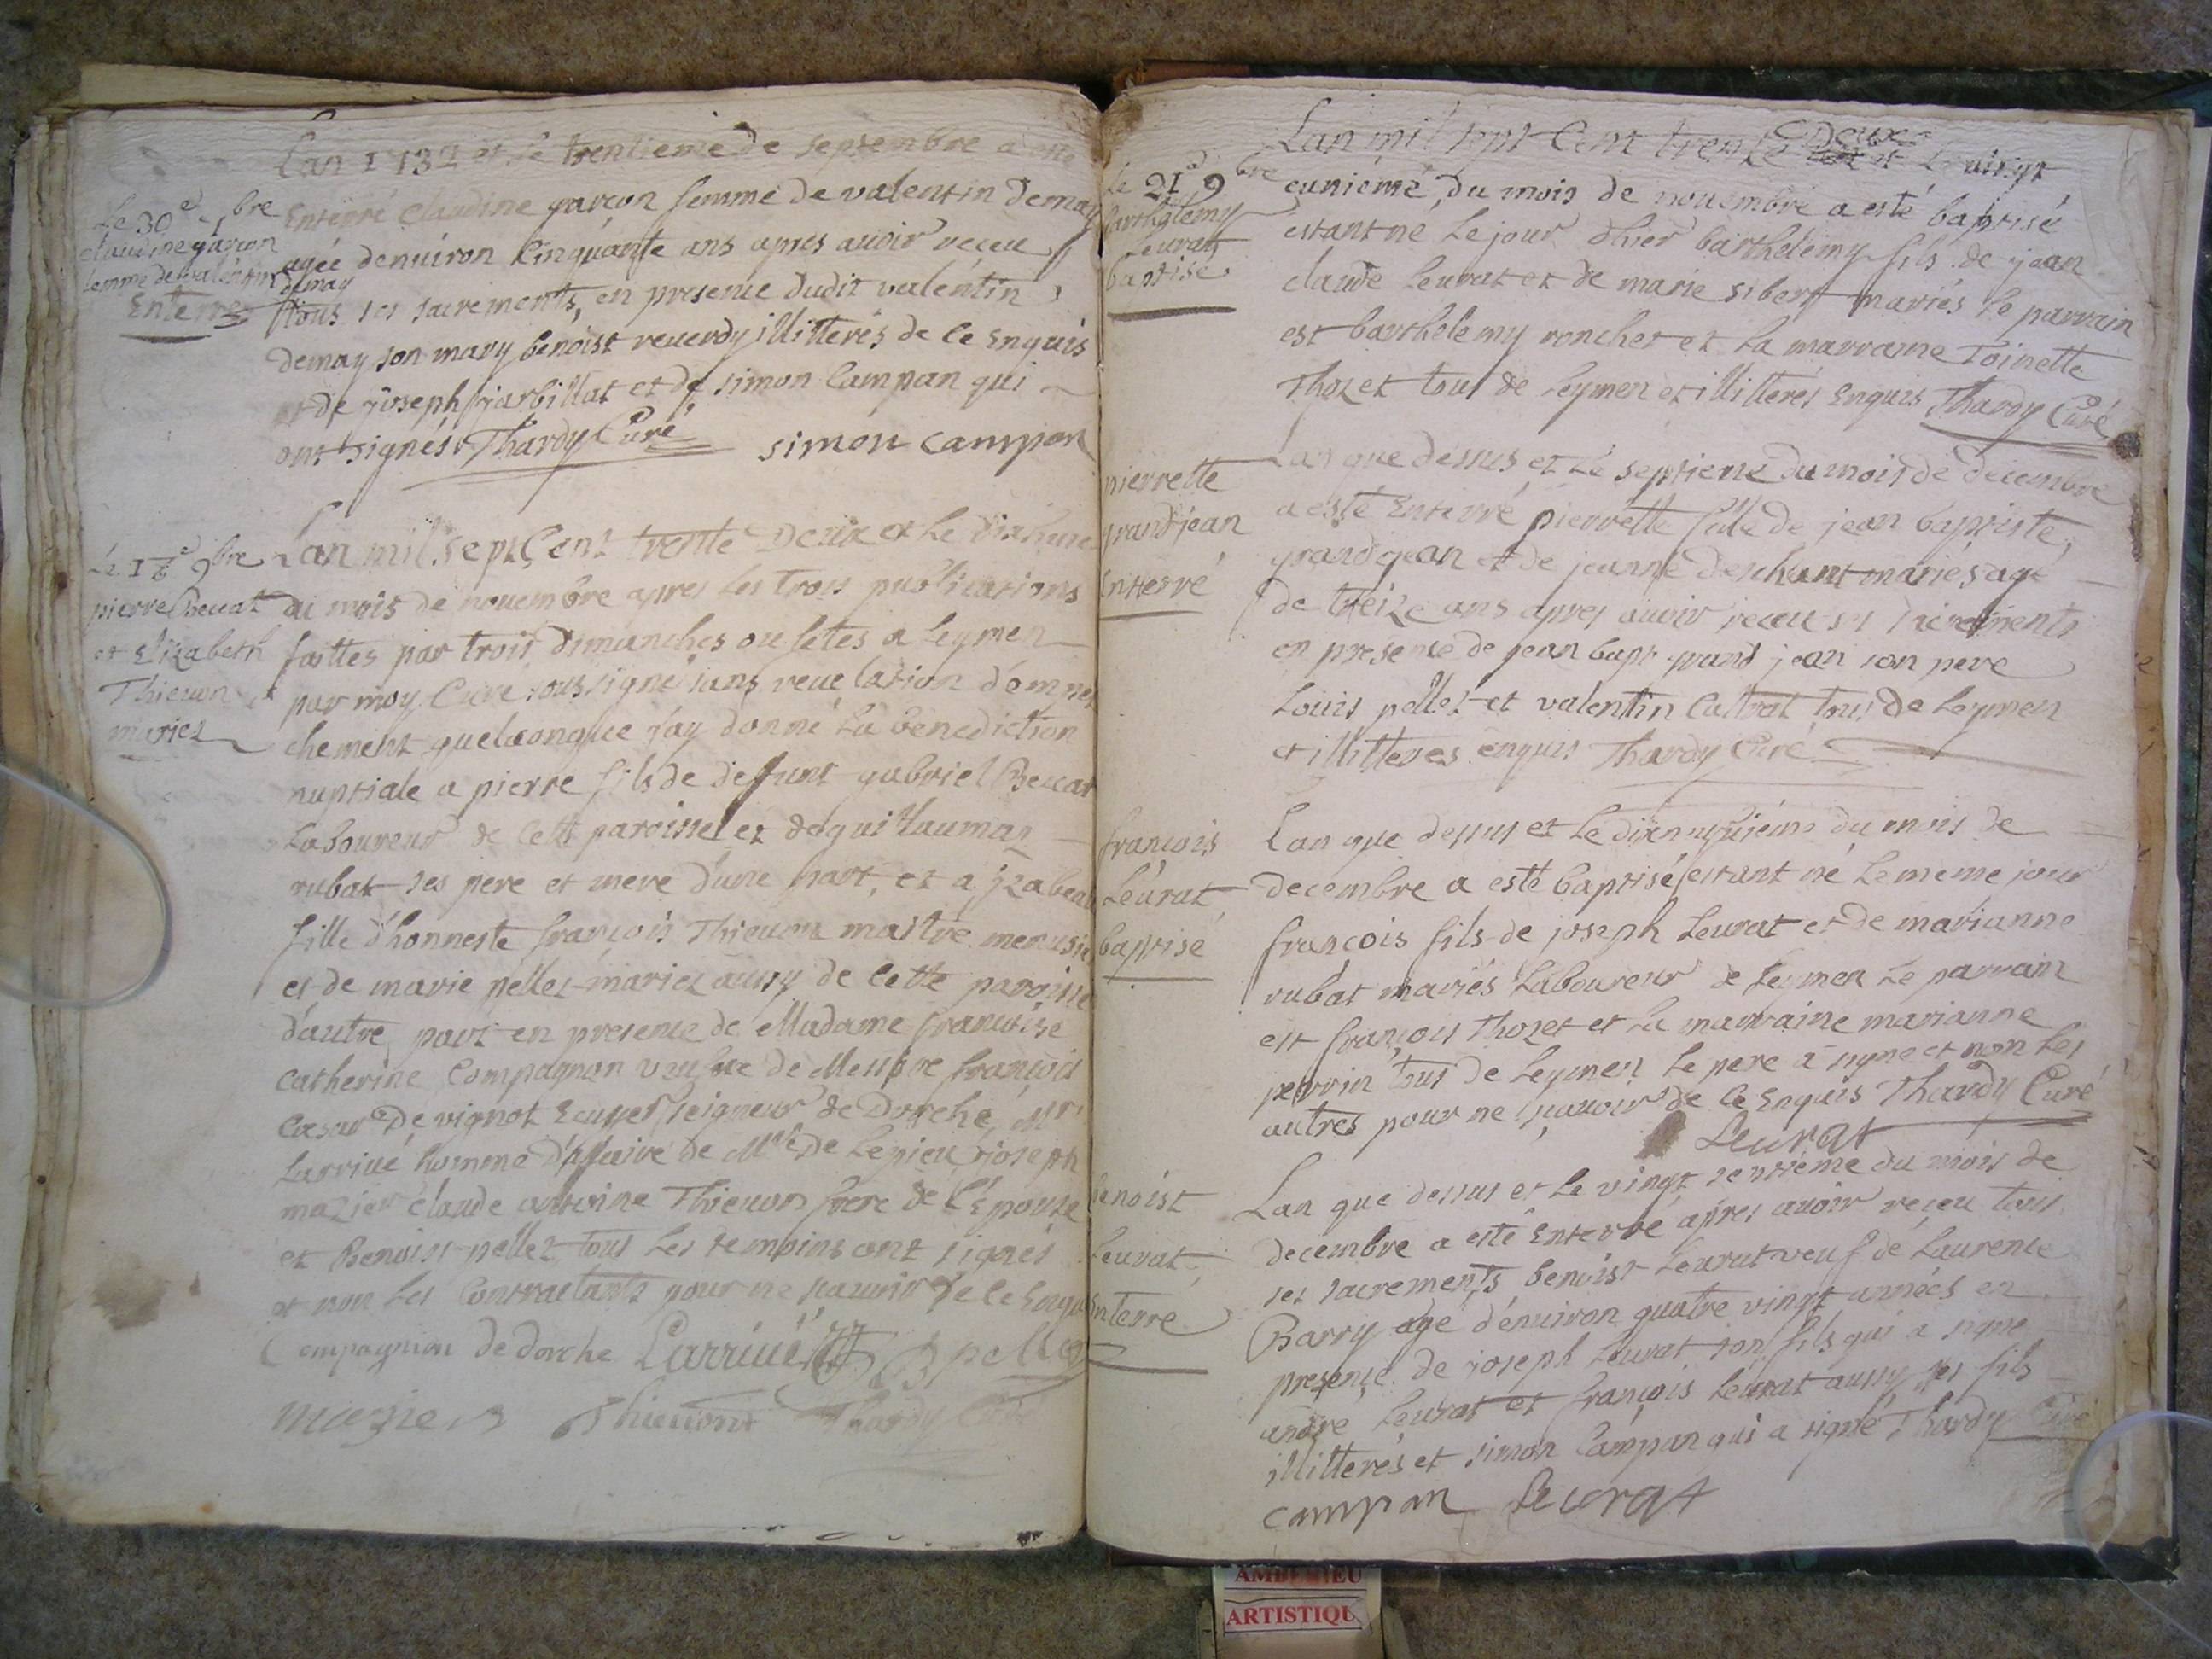 Lan 1732 et le trentieme de septembre a este
Le 30e 7bre
claudine garcon
femme de valentin
demay
Enterrez
Enterré claudine garcon femme de valentin demay
agée denuiron Cinquante ans apres auoir receu
tous ses sacrements, en presence dudit valentin
demay son mary benoist reuerdy illitterés de ce Enquis
et de joseph jarbillat et de simon Campan qui
ont signés Thardy Curé simon campan
Le 18e 9bre
pierre Beccat
et Elizabeth
Thieuon
mariez
Lan mil sept Cent trente Deux et le dixhuit
du mois de nouembre apres les trois publications
faittes par trois dimanches ou fetes a leymen
par moy Cure soussigné sans reuelation d'empes
chement quelconque j'ay donné la benediction
nuptiale a pierre fils de deffunt gabriel Beccat
laboureur de cette paroisse et de guillauman
rubat ses pere et mere d'une part, et a jzabeau
fille d'honneste françois Thieuon maitre menusie
et de marie pellez mariez aussy de cette paroisse
d'autre part en presence de Madame francoise
catherine Compagnon veufue de Messire francois
Cæsar De vignot Ecuyer seigneur de Dorche, Mr
Larriué homme d'affaire de Mlle de Lepieu joseph
mazier claude antoine Thieuon frere de l'épouse
et Benoist pellez tous les temoins ont signés
et non les Contractants pour ne scauoir de ce Enqu
Compagnion de dorche Larriué B pellez
mazier Thieuont Thardy Curé
Lan mil sept Cent trente Deux et le vingt
Le 21e 9bre
barthelemy
Leurat
baptisé
eunieme du mois de nouembre a esté baptisé
estant né le jour d'hier barthelemy fils de jean
claude Leurat et de marie sibert mariés le parrain
est barthelemy ronchet et la marraine Toinette
Thozet tous de leymen et illitterés Enquis Thardy Curé
pierrette
grandjean
Enterré
Lan que dessus et le septieme du mois de decembre
a esté Enterré pierrette fille de jean baptiste
grandjean et de jeanne deschant mariés age
de treize ans apres auoir receu ses sacrements
en presence de jean bapt grand jean son pere
Louis pellez et valentin Cattrat tous de leymen
et illitteres enquis Thardy Curé
françois
Leurat
baptisé
Lan que dessus et le dixneufuieme du mois de
decembre a esté baptisé estant né le meme jour
françois fils de joseph Leurat et de marianne
rubat mariés laboureur de leymen le parrain
est françois Thozet et la marraine marianne
perrin tous de leymen le pere a signe et non les
autres pour ne scauoir de ce Enquis Thardy Curé
Leurat
benoist
Leurat
Enterre
Lan que dessus et le vingt septieme du mois de
decembre a esté Enterré apres auoir receu tous
ses sacrements benoist Leurat veuf de Laurence
Barry agé d'enuiron quatre vingt années en
presence de joseph Leurat son fils qui a signe
andre Leurat et françois Leurat aussy ses fils
illitterés et simon Campan qui a signé Thardy Curé
campan Leurat
ARTISTIQU